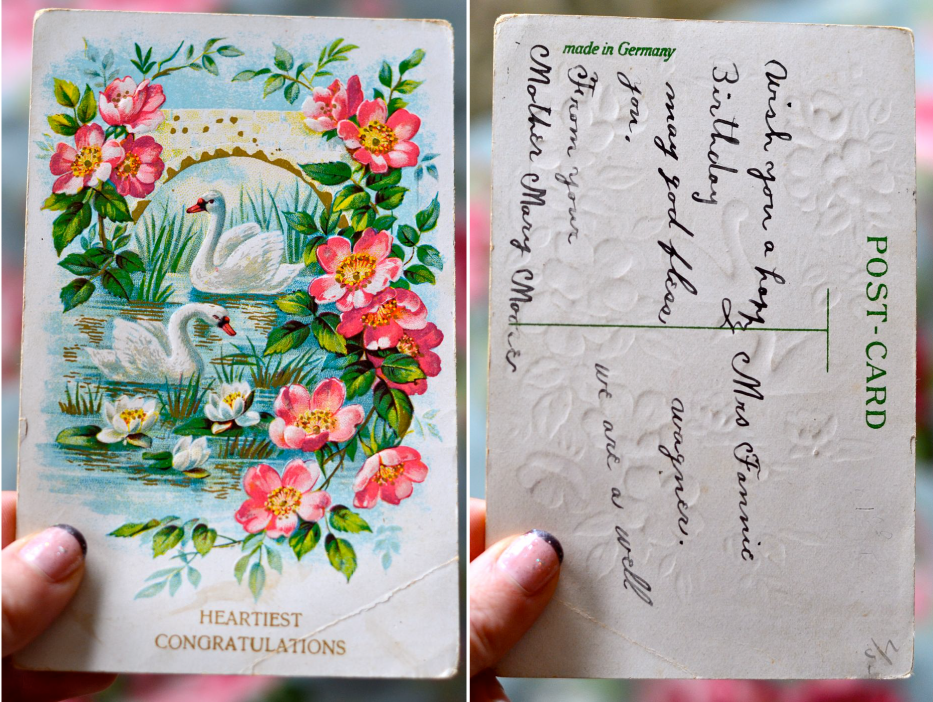 HEARTIEST
CONGRATULATIONS
made in Germany
POST-CARD
Wish you a hapy
Birthday &
may god bless
you.
From your
Mother Mary
Mrs Fannie
wagners.
we are as well